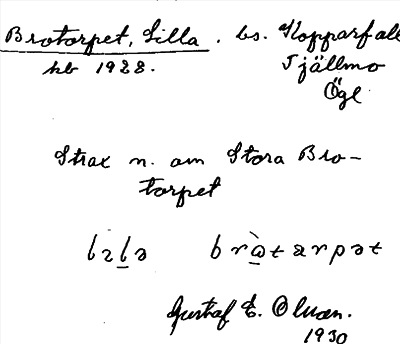 Brotorpet, Lilla. bs. Kopparfall
hb 1928. Tjällmo
Ögl
Strax n. om Stora Bro-
torpet
Gustaf E. Olsson.
1930